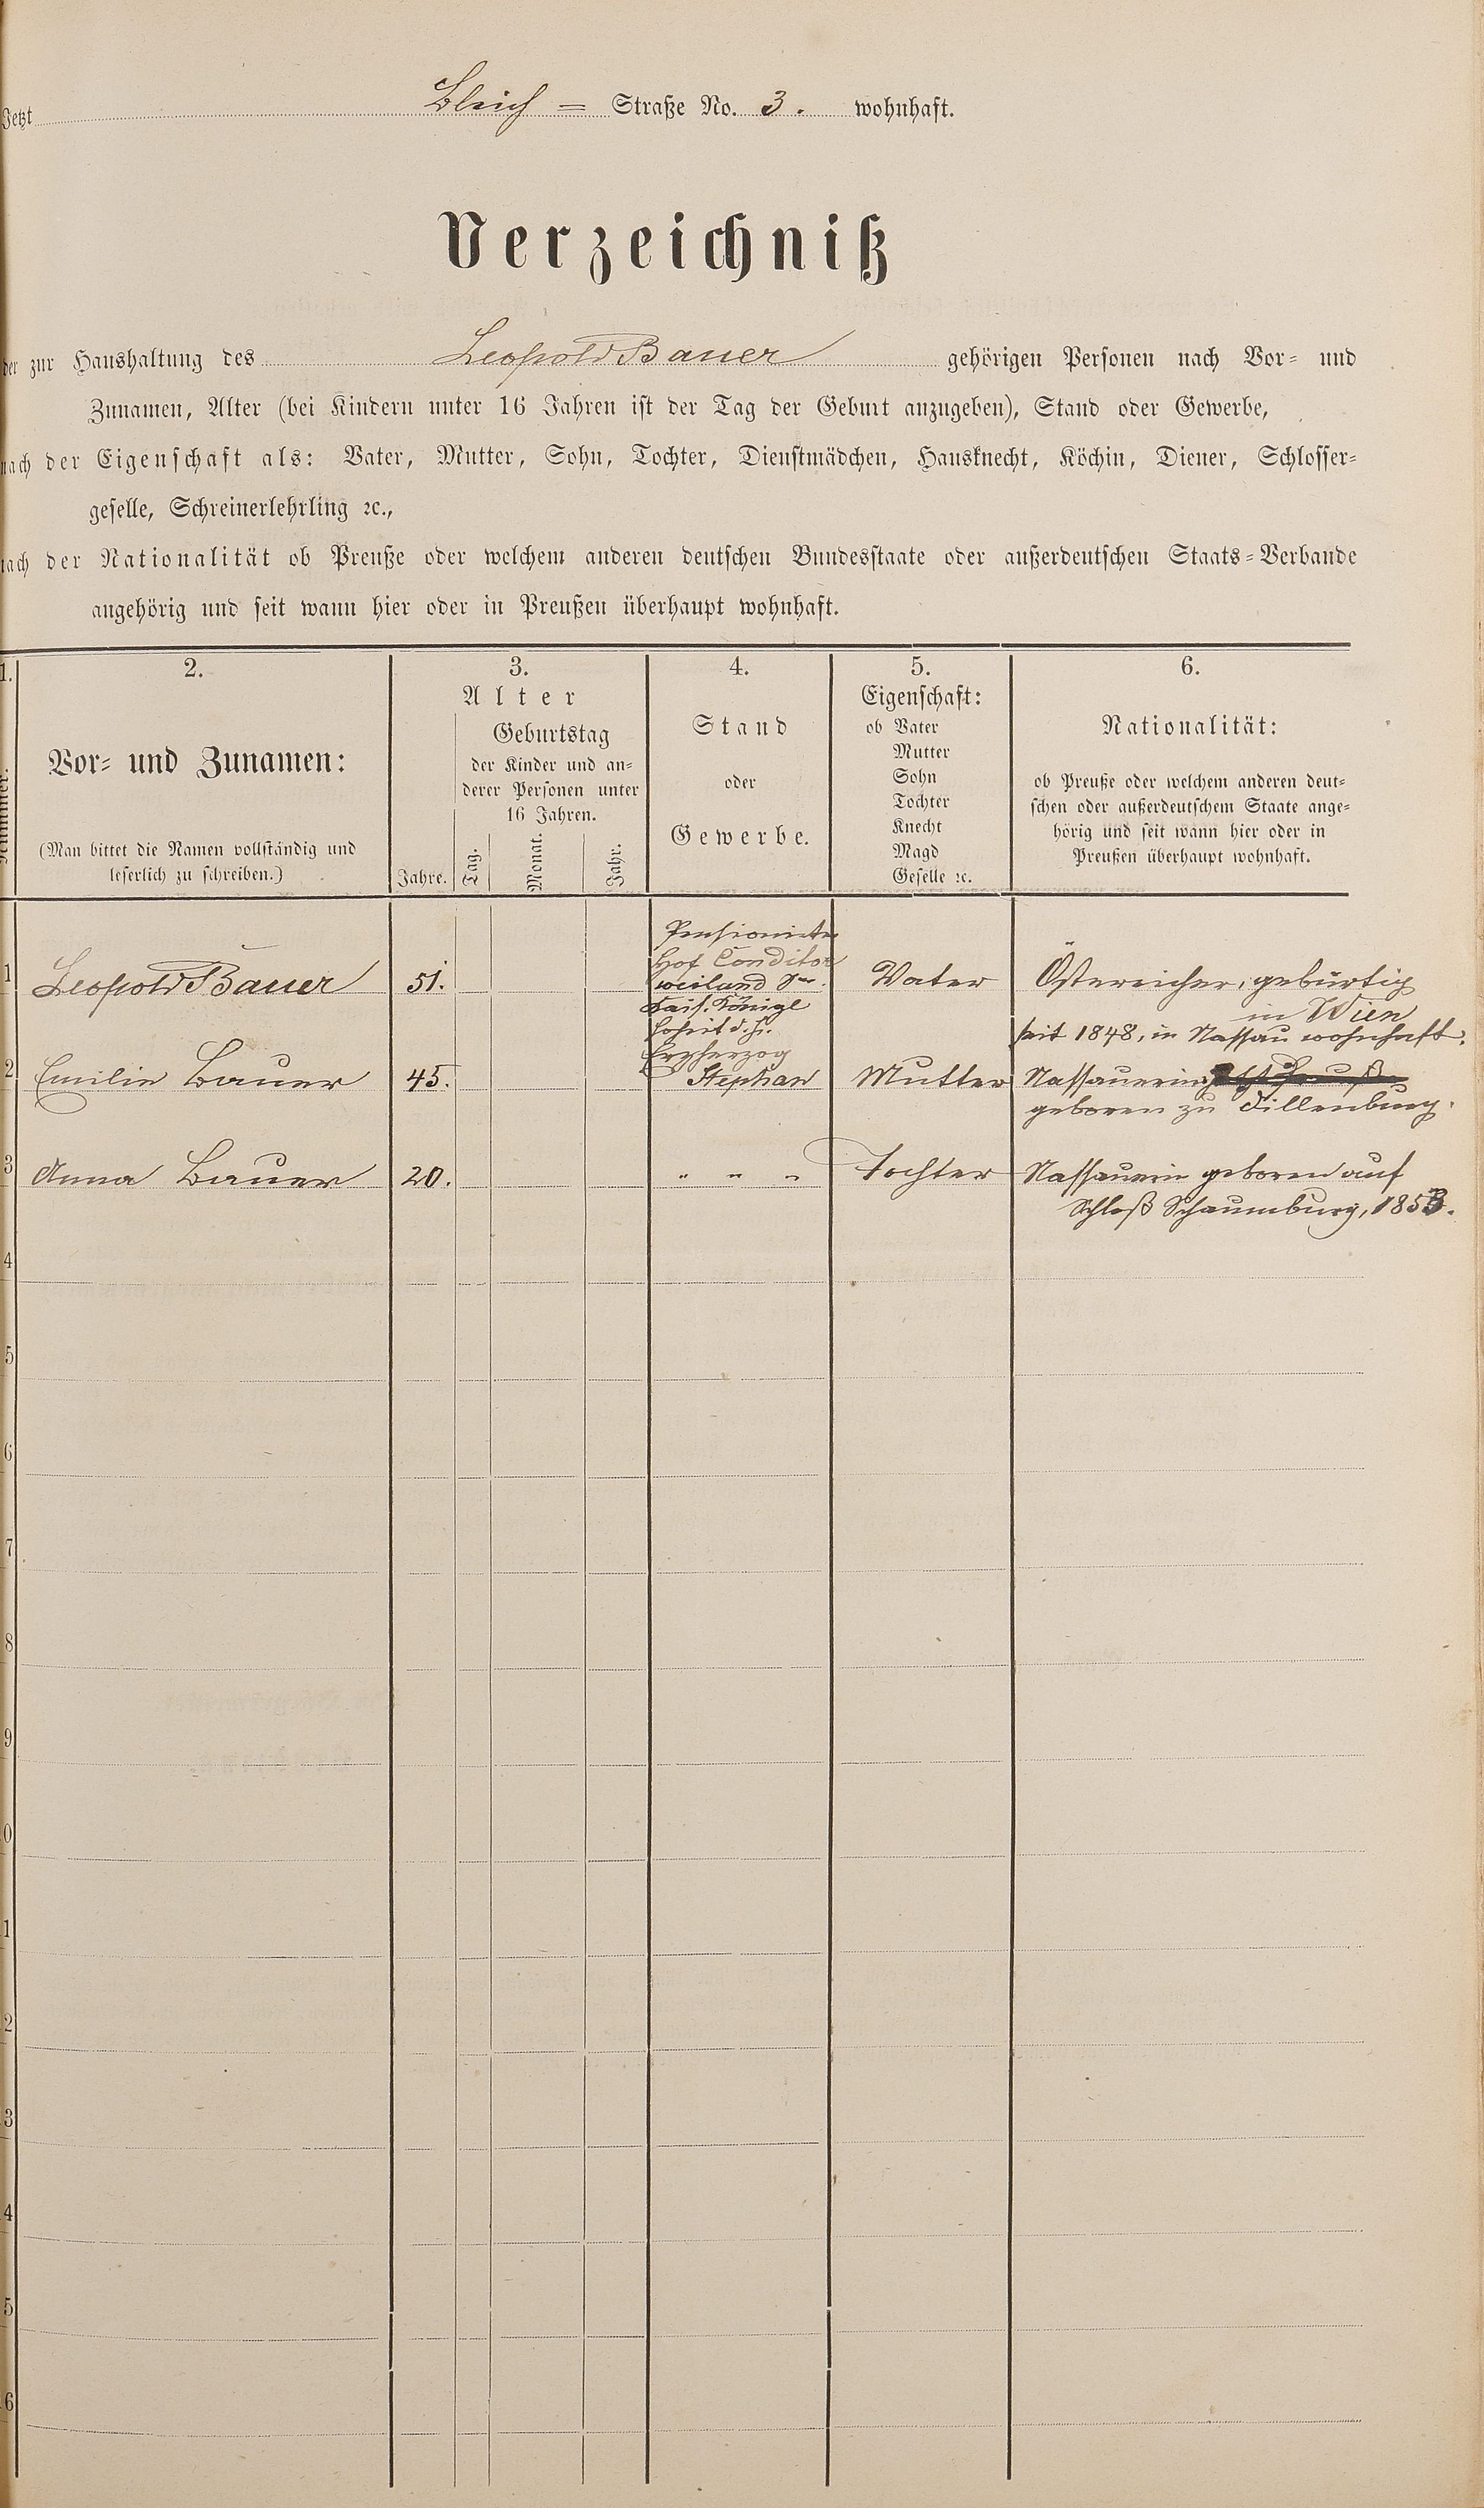 Jetzt Bleich = Straße No. 3. wohnhaft.
Verzeichniß
der zur Haushaltung des Leopold Bauer gehörigen Personen nach Vor- und
Zunamen, Alter (bei Kindern unter 16 Jahren ist der Tag der Geburt anzugeben), Stand oder Gewerbe,
nach der Eigenschaft als: Vater, Mutter, Sohn, Tochter, Dienstmädchen, Hausknecht, Köchin, Diener, Schlosser-
geselle, Schreinerlehrling ꝛc.,
nach der Nationalität ob Preuße oder welchem anderen deutschen Bundesstaate oder außerdeutschen Staats-Verbande
angehörig und seit wann hier oder in Preußen überhaupt wohnhaft.
1.
Nummer.
2.
Vor- und Zunamen:
(Man bittet die Namen vollständig und
leserlich zu schreiben.)
3.
Alter
Jahre.
Geburtstag
der Kinder und an-
derer Personen unter
16 Jahren.
Tag.
Monat.
Jahr.
4.
Stand
oder
Gewerbe.
5.
Eigenschaft:
ob Vater
Mutter
Sohn
Tochter
Knecht
Magd
Geselle ꝛc.
6.
Nationalität:
ob Preuße oder welchem anderen deut-
schen oder außerdeutschem Staate ange-
hörig und seit wann hier oder in
Preußen überhaupt wohnhaft.
1
Leopold Bauer
51.
Pensionirter
Hof Conditor
weiland Sr.
Kais. Königl
Hoheit d. H.
Erzherzog
Stephan
Vater
Östereicher, gebürtig
in Wien
seit 1848, in Nassau wohnhaft.
2
Emilie Bauer
45.
Mutter
Nassauerin
geboren zu Dillenburg.
3
Anna Bauer
20.
" " "
Tochter
Nassauerin geboren auf
Schloß Schaumburg, 1853.
4
5
6
7
8
9
0
1
2
3
4
5
6